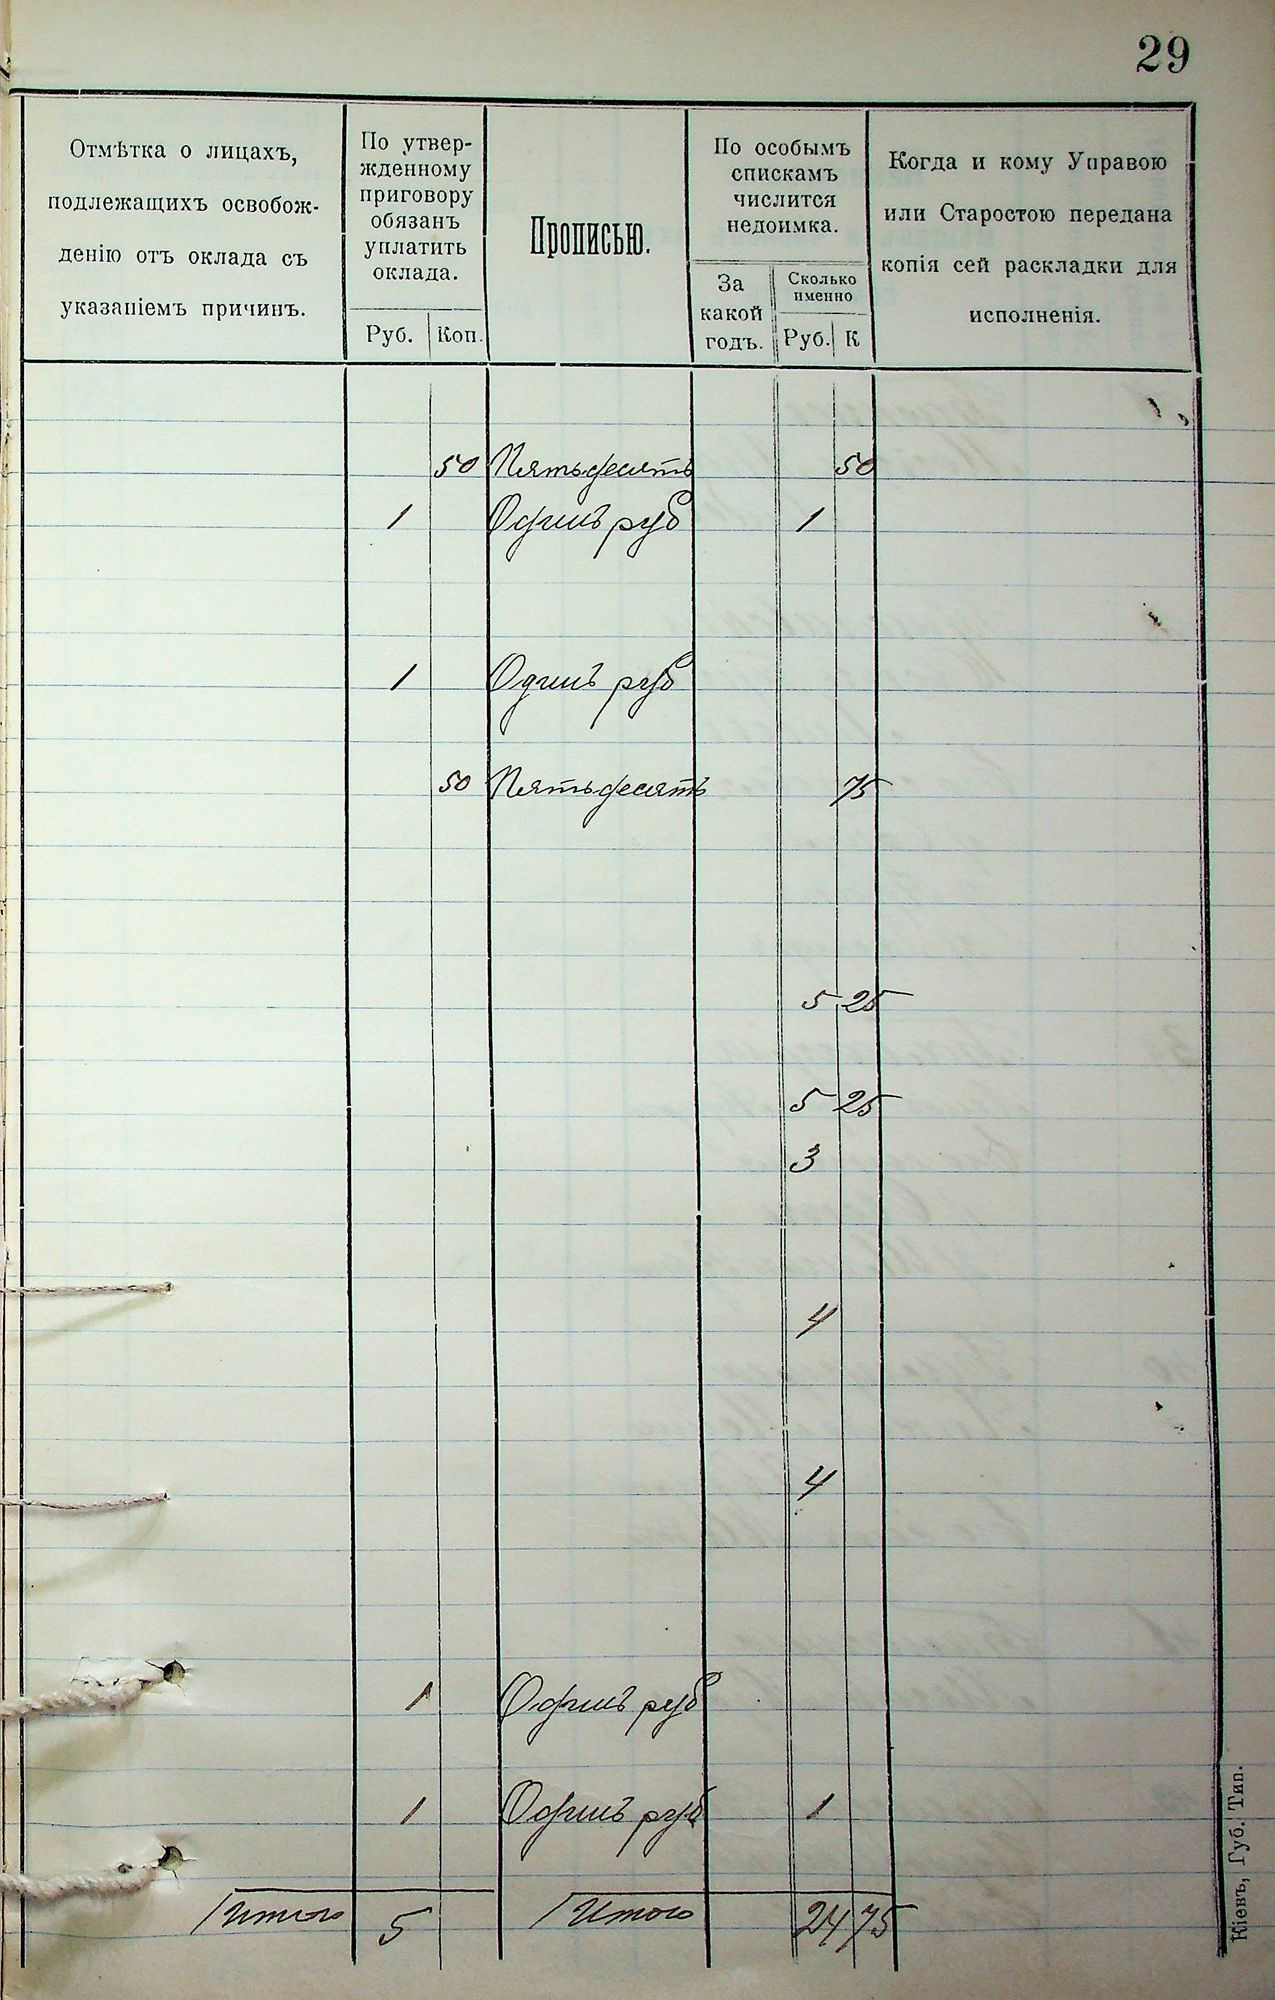 29
Отмѣтка о лицахъ,
подлежащихъ освобож-
денію отъ оклада съ
указаніемъ причинъ.
По утвер-
жденному
приговору
обязанъ
уплатить
оклада.
Руб. Коп.
Прописью.
По особымъ
спискамъ
числится
недоимка.
За
какой
годъ.
Сколько
именно
Руб. К
Когда и кому Управою
или Старостою передана
копія сей раскладки для
исполненія.
50 Пятьдесятъ 50
1 Одинъ руб 1
1 Одинъ руб
50 Пятьдесятъ 75
5 25
5 25
3
4
4
1 Одинъ руб
1 Одинъ руб 1
Итого 5 Итого 24 75
Кіевъ, Губ. Тип.